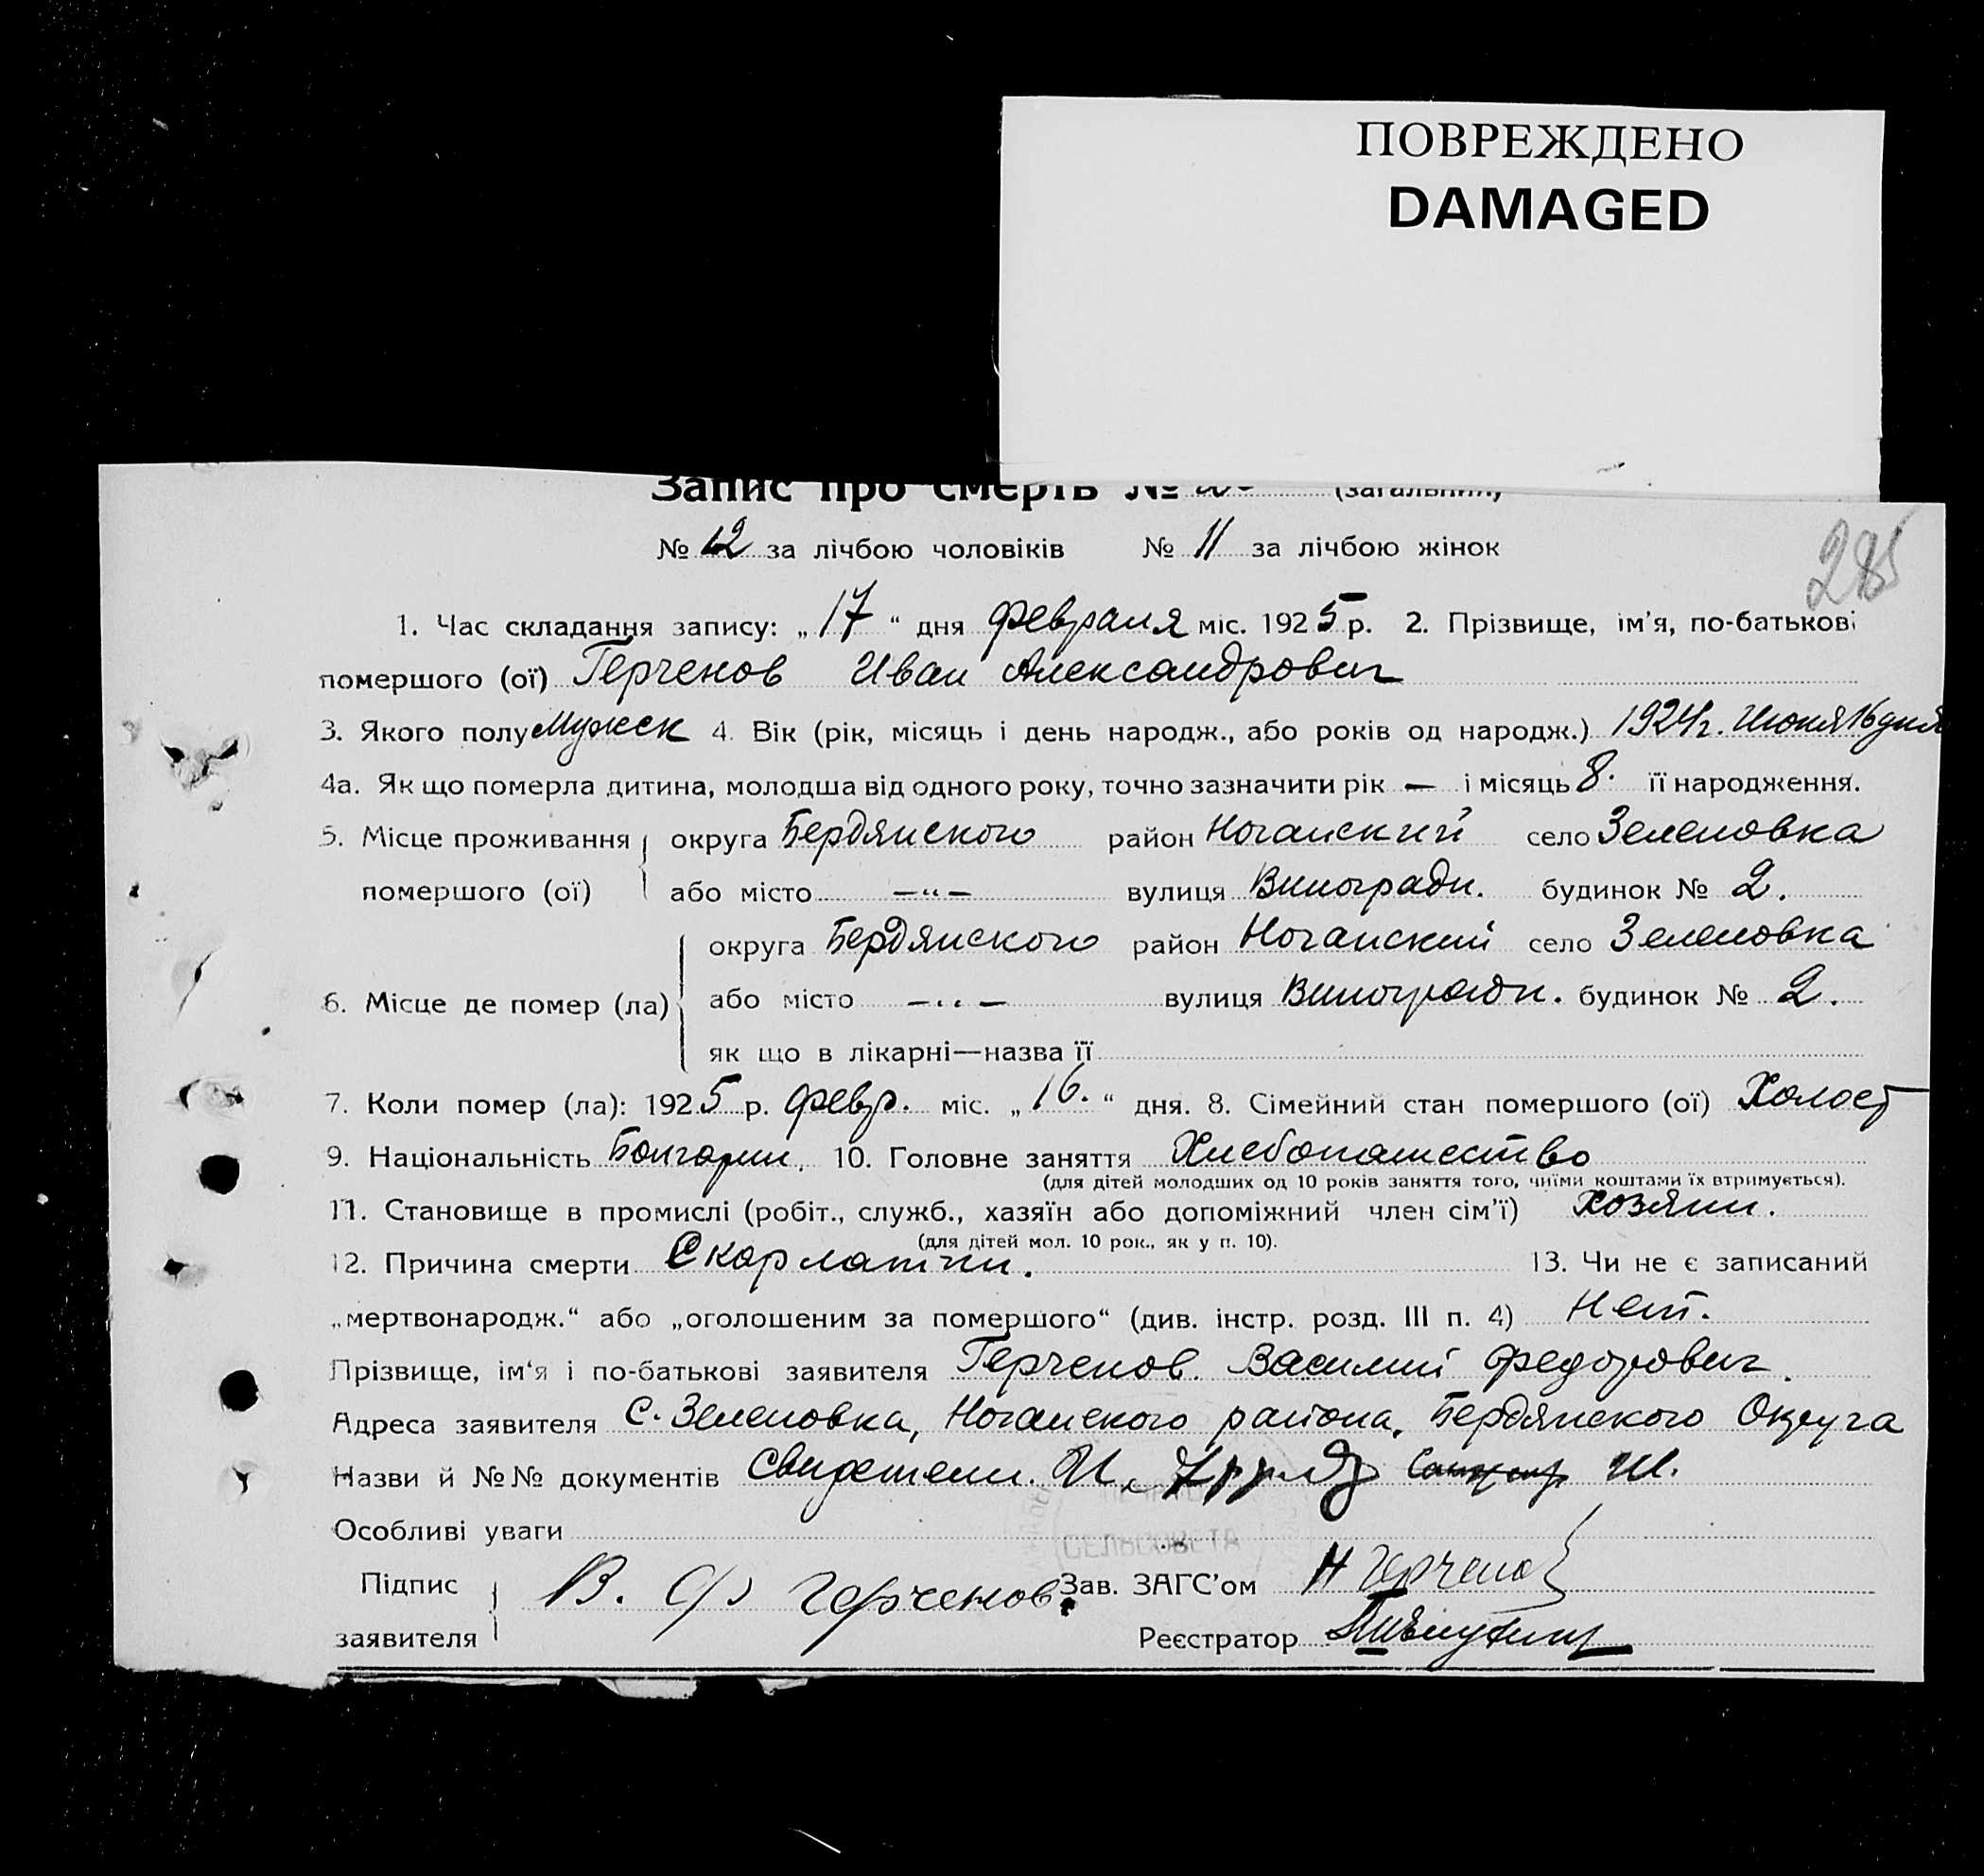 ПОВРЕЖДЕНО
DAMAGED
Запис про смерть № (загальний)
285
№ 12 за лічбою чоловіків № 11 за лічбою жінок
1. Час складання запису: „17“ дня февраля міс. 1925 р. 2. Прізвище, ім'я, по-батькові
помершого (ої) Герченов Иван Александрович
3. Якого полу Мужск 4. Вік (рік, місяць і день народж., або років од народж.) 1924 г. Июня 16 дня
4а. Як що померла дитина, молодша від одного року, точно зазначити рік — і місяць 8. її народження.
5. Місце проживання округа Бердянского район Ногайский село Зеленовка
помершого (ої) або місто —“— вулиця Виноградн. будинок № 2.
округа Бердянского район Ногайский село Зеленовка
6. Місце де помер (ла) або місто —“— вулиця Виноградн. будинок № 2.
як що в лікарні—назва її
7. Коли помер (ла): 1925 р. февр. міс. „16.“ дня. 8. Сімейний стан помершого (ої) Холост
9. Національність Болгарин. 10. Головне заняття Хлебопашество
(для дітей молодших од 10 років заняття того, чиїми коштами їх втримується).
11. Становище в промислі (робіт., служб., хазяїн або допоміжний член сім'ї) хозяин.
(для дітей мол. 10 рок., як у п. 10).
12. Причина смерти Скарлатин. 13. Чи не є записаний
„мертвонародж.“ або „оголошеним за помершого“ (див. інстр. розд. III п. 4) Нет.
Прізвище, ім'я і по-батькові заявителя Герченов. Василий Федорович.
Адреса заявителя С. Зеленовка, Ногайского района, Бердянского Округа
Назви й №№ документів Свидетели. И.
Особливі уваги
СЕЛЬСОВЕТА
Підпис В. Ф Герченов. Зав. ЗАГС'ом Н Герченов
заявителя Реєстратор